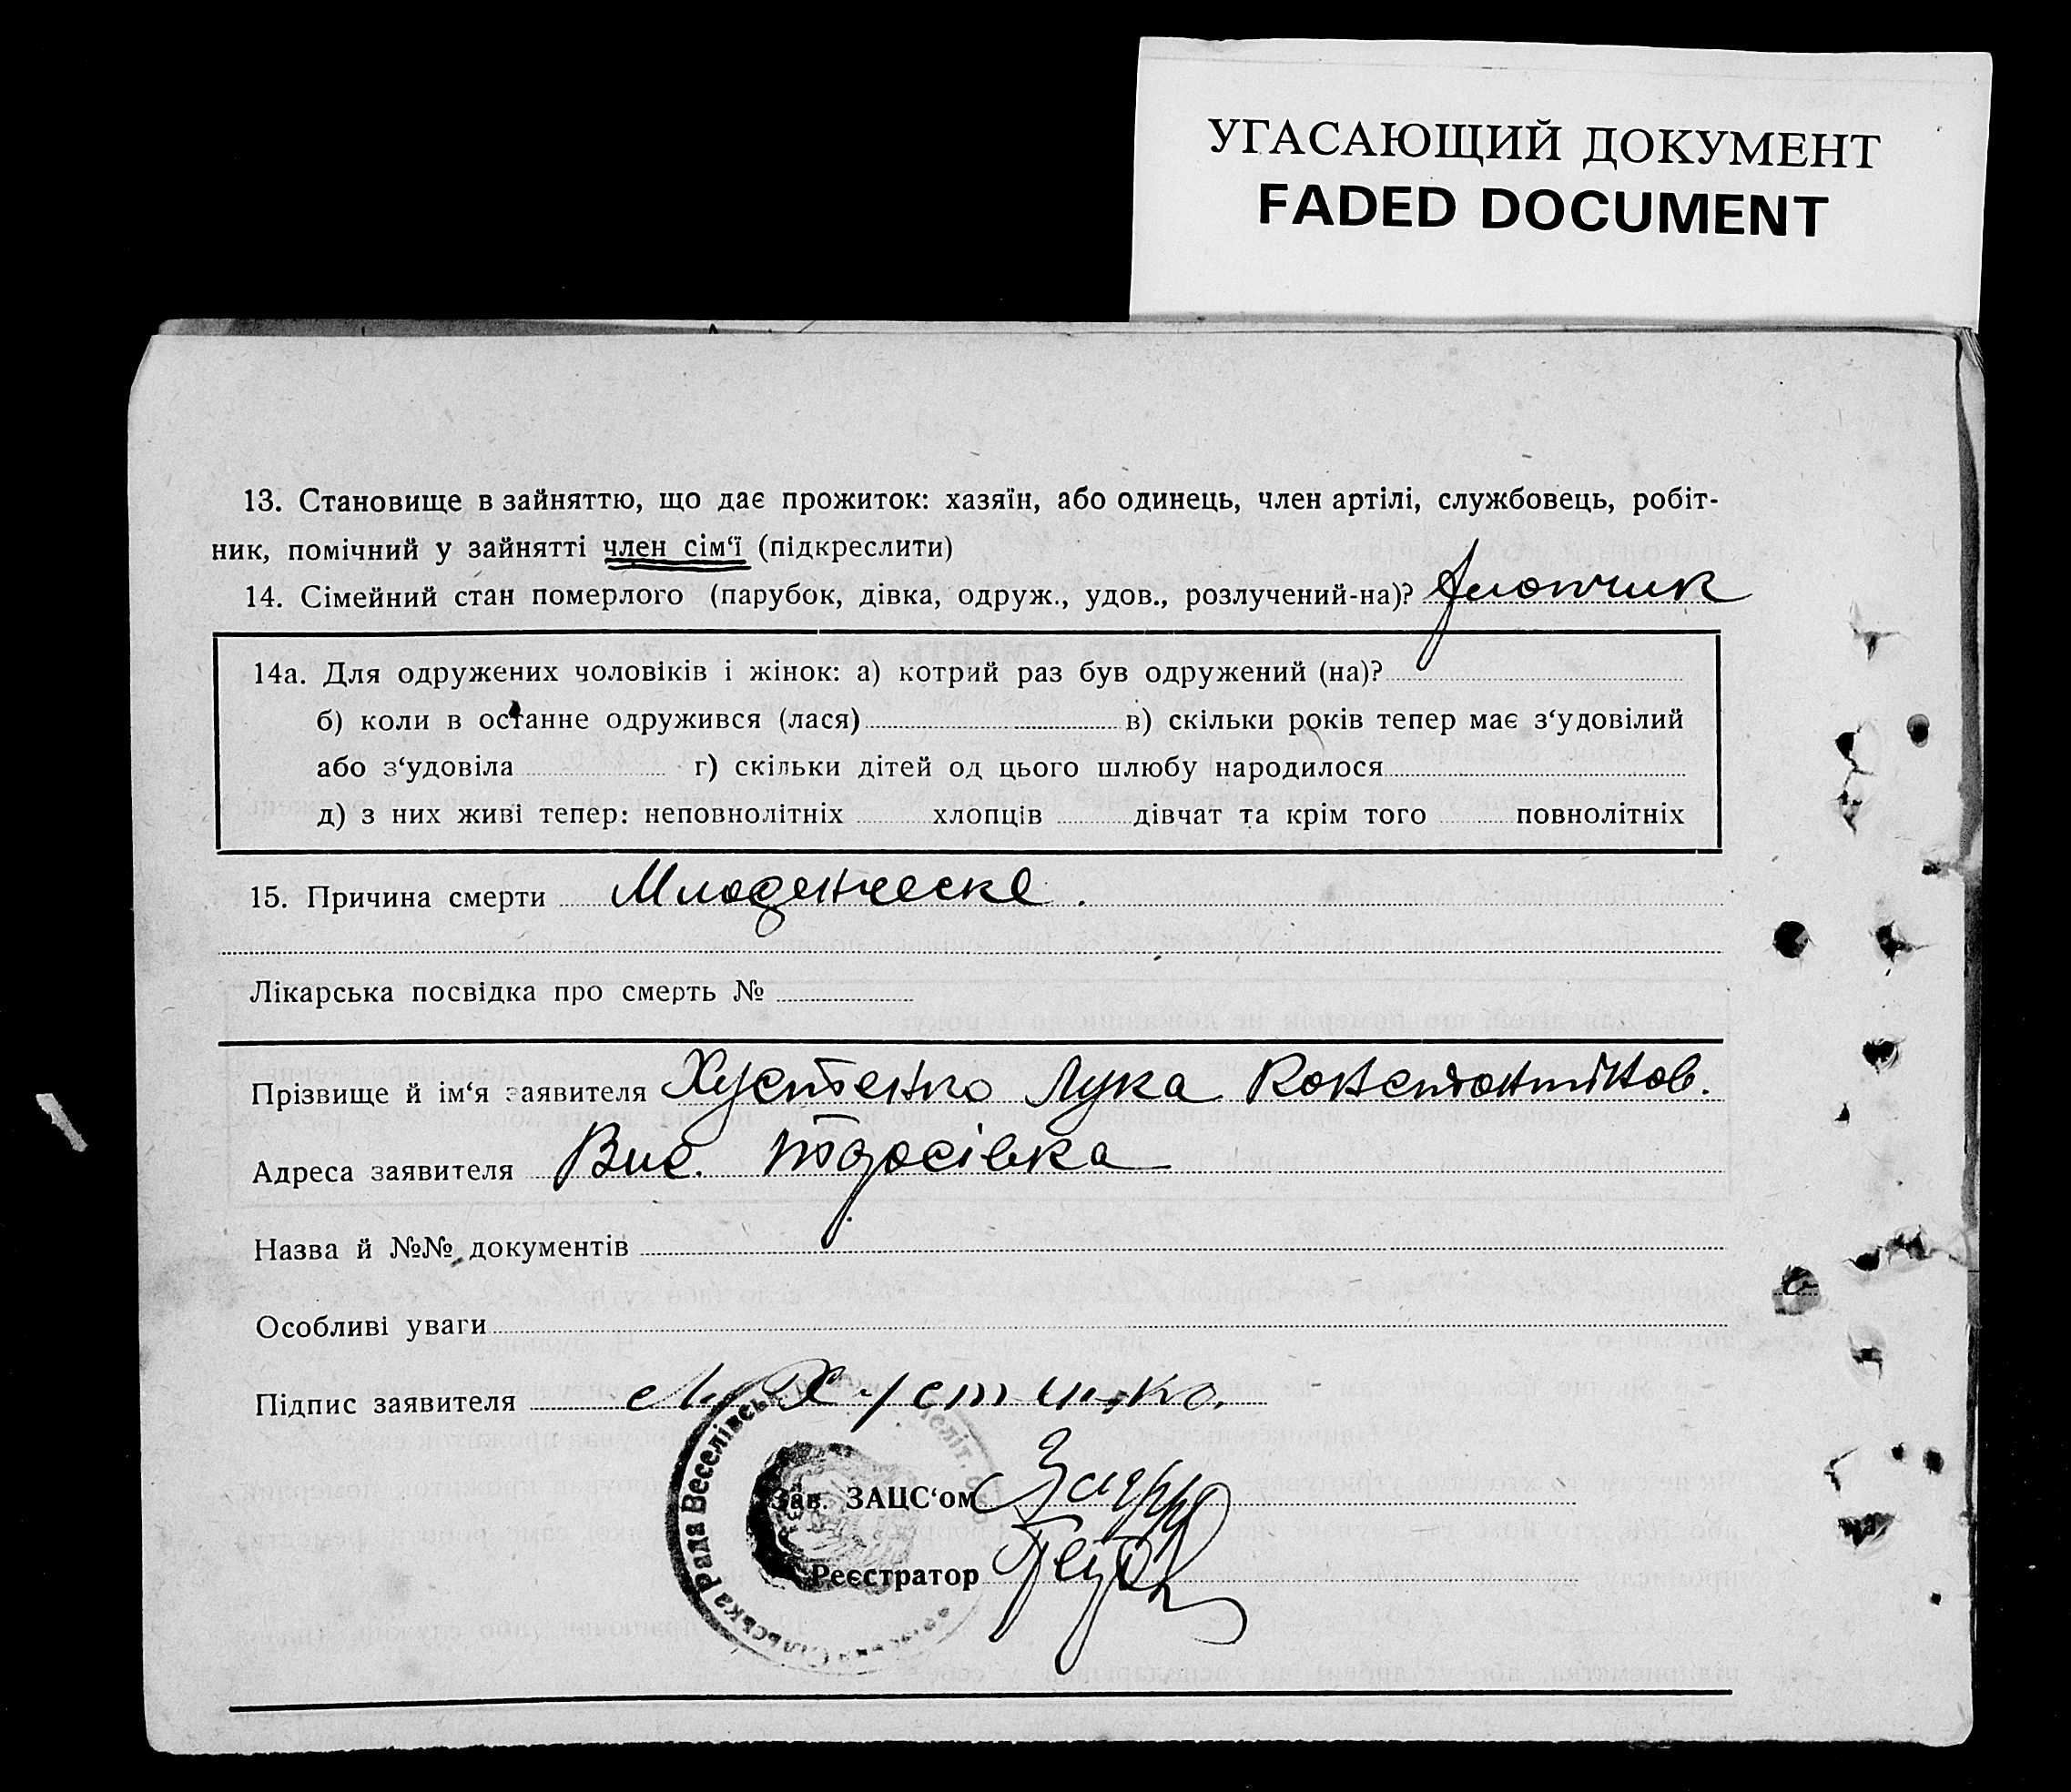 УГАСАЮЩИЙ ДОКУМЕНТ
FADED DOCUMENT
13. Становище в зайняттю, що дає прожиток: хазяїн, або одинець, член артілі, службовець, робіт-
ник, помічний у зайнятті член сім‘ї (підкреслити)
14. Сімейний стан померлого (парубок, дівка, одруж., удов., розлучений-на)?
14а. Для одружених чоловіків і жінок: а) котрий раз був одружений (на)?
б) коли в останнє одружився (лася) в) скільки років тепер має з‘удовілий
або з‘удовіла г) скільки дітей од цього шлюбу народилося
д) з них живі тепер: неповнолітніх хлопців дівчат та крім того повнолітніх
15. Причина смерти Младенческе.
Лікарська посвідка про смерть №
Прізвище й ім‘я заявителя Хустенко Лука Константинов.
Адреса заявителя Вис. Тодосівка
Назва й №№ документів
Особливі уваги
Підпис заявителя Л. Хустинко.
Зав. ЗАЦС‘ом
Реєстратор
Сільська Рада Веселівськ